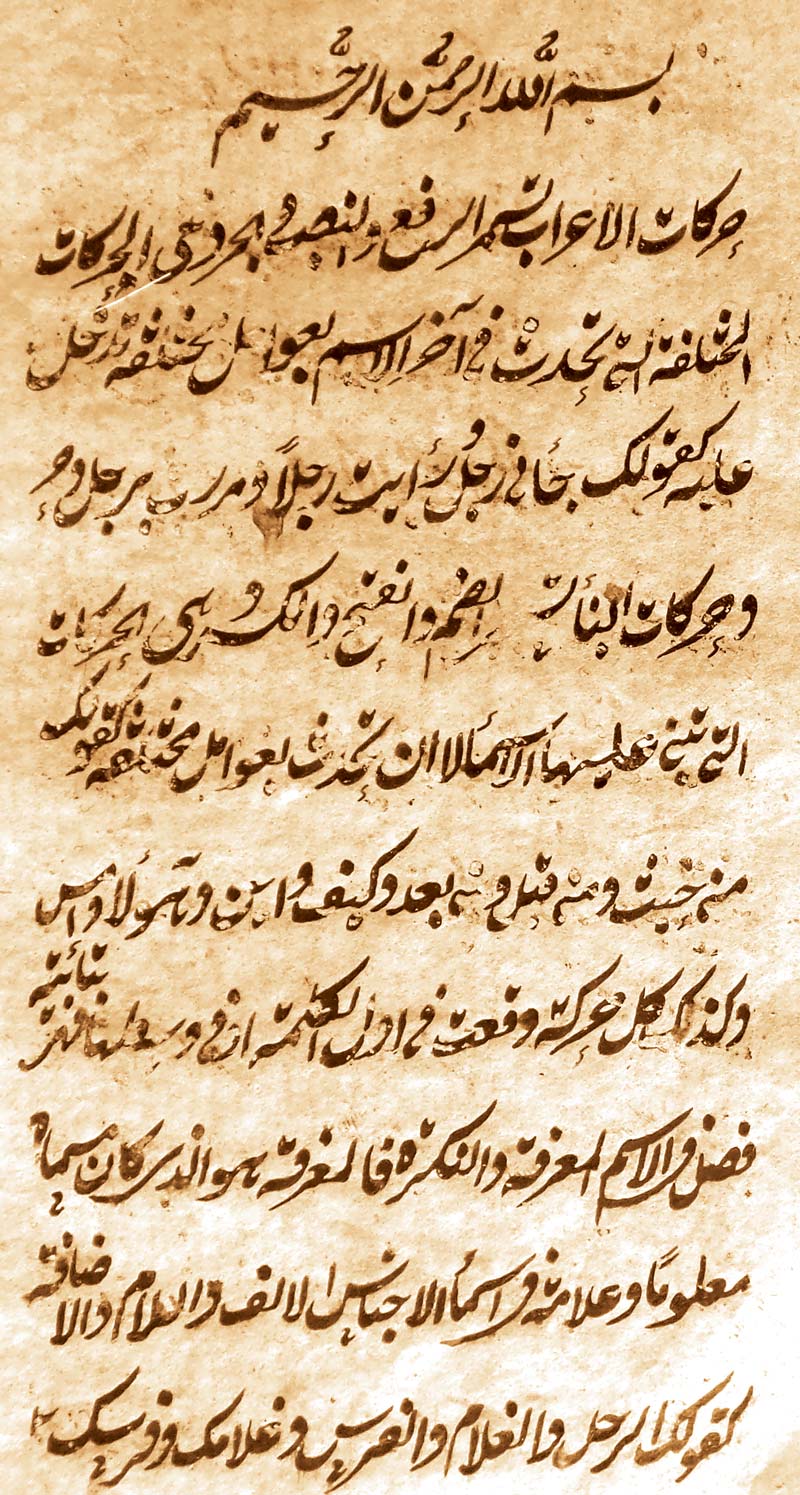 بسم الله الرحمن الرحيم
حركات الاعراب تسمى الرفع والنصب والجر وهي الحركات
المختلفة التي تحدث في آخر الاسم بعوامل مختلفة تدخل
عليه كقولك جأني رجلٌ رأيت رجلاً ومررت برجل و
وحركات البنأ الضم والفتح والكسر وهي الحركات
التي تبنى عليها الاسمأ لا ان تحدث بعوامل مختلفة كقولك
منه حيث ومنه قبل ومنه بعد وكيف واين وهٓولأ وامس
وكذلك كل حركة وقعت في اول الكلمة او في وسطها فهي بنائية
فصل في الاسم المعرفة والنكرة فالمعرفة هو الذي كان مسماه
معلومًا وعلامته في اسمأ الاجناس الالف واللام والاضافة
كقولك الرجل والغلام والفرس وغلامك وفرسك